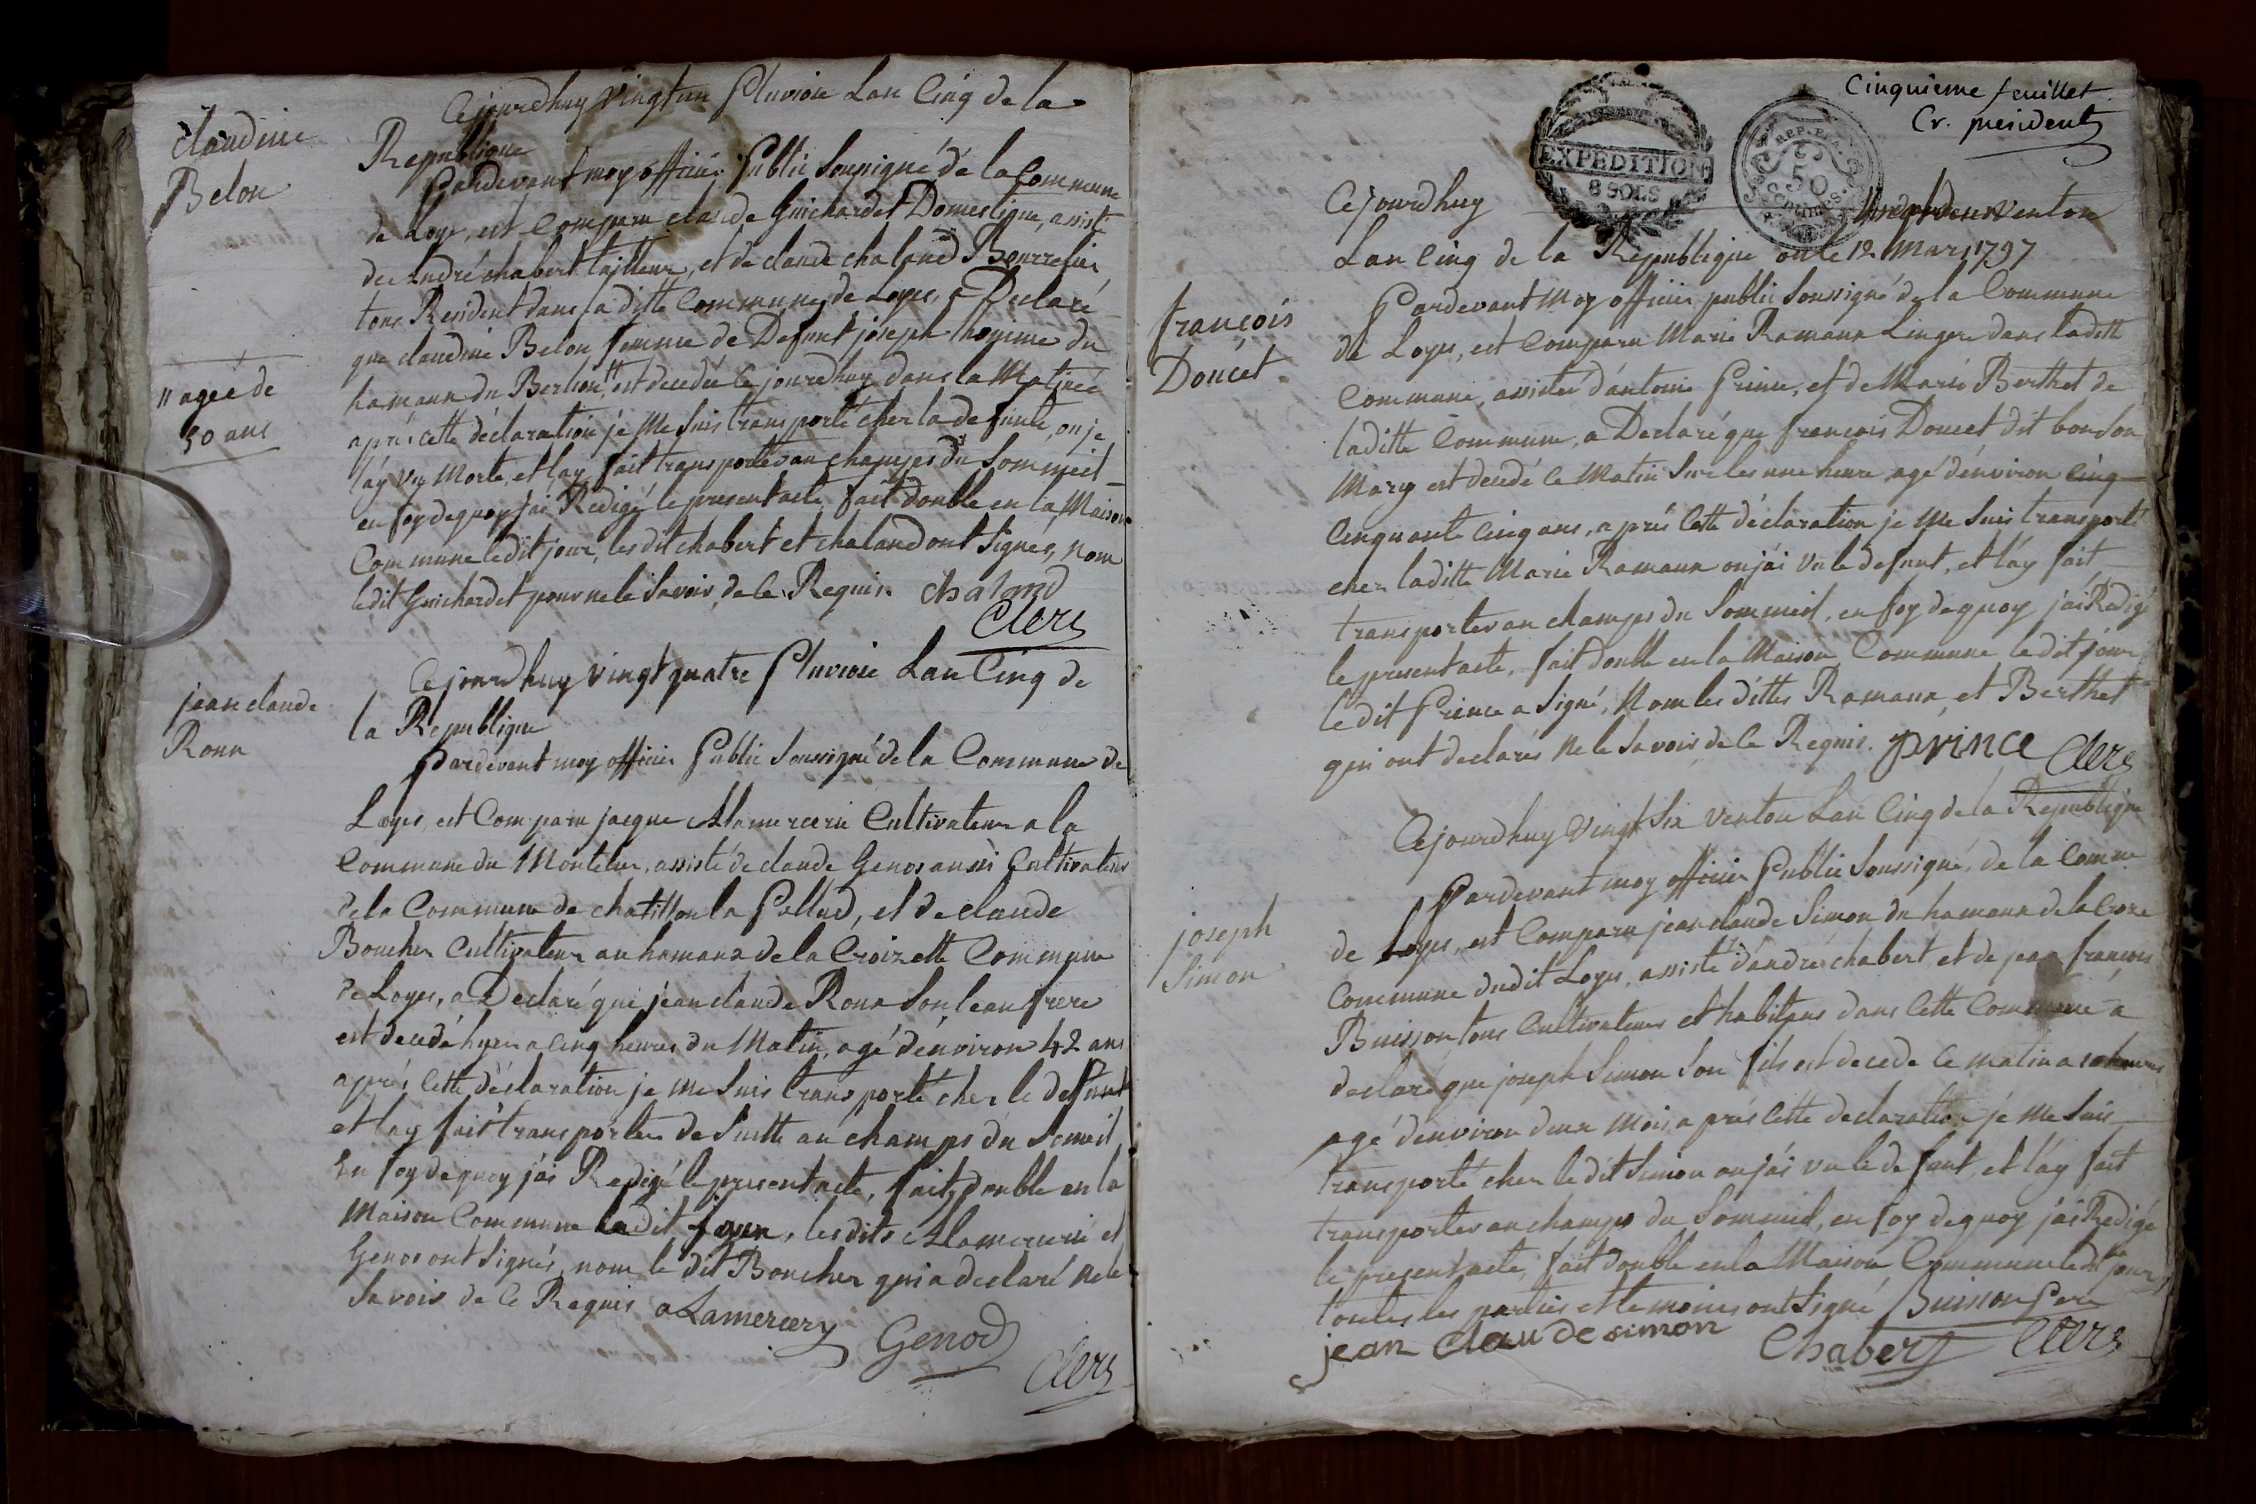 Claudine
Belon
Cejourdhuy vingtun Pluviose Lan Cinq de la
Republique
Pardevant moy officier Public Soussigné de la Commune
de Loye, est Comparu claude Guichardet Domestique, assisté
de André chabert tailleur, et de claude chaland
tous Resident dans la ditte Commune de Loyes, a Declaré
que claudine Belon femme de Defunt joseph du
hamaux du " est decedée Cejourdhuy dans la Matinée
" agée de
50 ans
aprés cette déclaration je Me Suis transporté cher la defunte, ou je
láy vu Morte, et lay fait transporter au champs du Sommeil
en foy de quoy jái Redigé le present acte, fait double en la Maison
Commune ledit jour, les dit chabert et chaland ont Signés, nom
ledit Guichardet pour ne le Savoir, de Ce Requis. chaland
Clerc
jean claude
Roux
Cejourdhuy vingt quatre Pluviose Lan Cinq de
la Republique
Pardevant moy officier Public Soussigné de la Commune de
Loyes, est Comparu jacque Alamercerie Cultivateur a la
Commune du Montelier, assisté de claude Genos aussi Cultivateur
de la Commune de chatillon la Pallud, et de claude
Boucher Cultivateur au hamaux de la Croizette Commune
de Loyes, a Declaré que jean claude Roux Son beau frere
est decedé hyer a Cinq heures du Matin, agé dénviron 42 ans
aprés Cette déclaration je me Suis transporté cher le defunt
et lay fait transporter de Suitte au champs du Someil
En foy de quoy jái Redigé le present acte, fait double en la
Maison Commune ledit jour, les dits Alamercerie et
Genos ont Signés, nom le dit Boucher qui a declaré ne le
Savoir de Ce Requis aLamercery
Genod
Clerc
Cinquieme feuillet.
Cr. president
EXPÉDITION
8 SOLS
REP. FRA.
50
CENTIMES.
Cejourdhuy vingt deux ventose
Lan Cinq de la Republique ou le 12 Mars 1797
françois
Doucet
Pardevant Moy officier public Soussigné de la Commune
de Loyes, est Comparu Marie Ramaux Lingere dans laditte
Commune, assistée dántoine Prince, et de Marie Berthet de
laditte Commune, a Declaré que francois Doucet dit bondon
Mary est decedé Ce Matin Sur les une heure agé dénviron Cinq
Cinquante Cinq ans, aprés Cette déclaration je Me Suis transporté
cher laditte Marie Ramaux ou jái vu le defunt, et láy fait
transporter au champs du Sommeil, en foy de quoy jái Redigé
le present acte, fait double en la Maison Commune ledit jour
le dit Prince a Signé, Nom les dittes Ramaux, et Berthet
qui ont declarés Ne le Savoir, de Ce Requis. prince Clerc
Cejourdhuy vingt Six ventose Lan Cinq de la Republique
joseph
Simon
Pardevant moy officier Public Soussigné, de la Comune
de Loyes, est Comparu jean claude Simon du hamaux de la Croze
Commune dudit Loyes, assisté dándré chabert et de jean françois
Buisson tous Cultivateurs et habitans dans Cette Commune a
declaré que joseph Simon Son fils est decede Ce matin a 10 heures
agé dénviron deux Mois, aprés Cette declaration je Me Suis
transporté cher le dit Simon ou jái vu le defunt, et láy fait
transporter au champs du Sommeil, en foy de quoy jái Redigé
le present acte, fait double en la Maison Commune ledit jour,
toutes les parties et temoins ont Signé Buisson Pere
jean claude simon Chabert Clerc